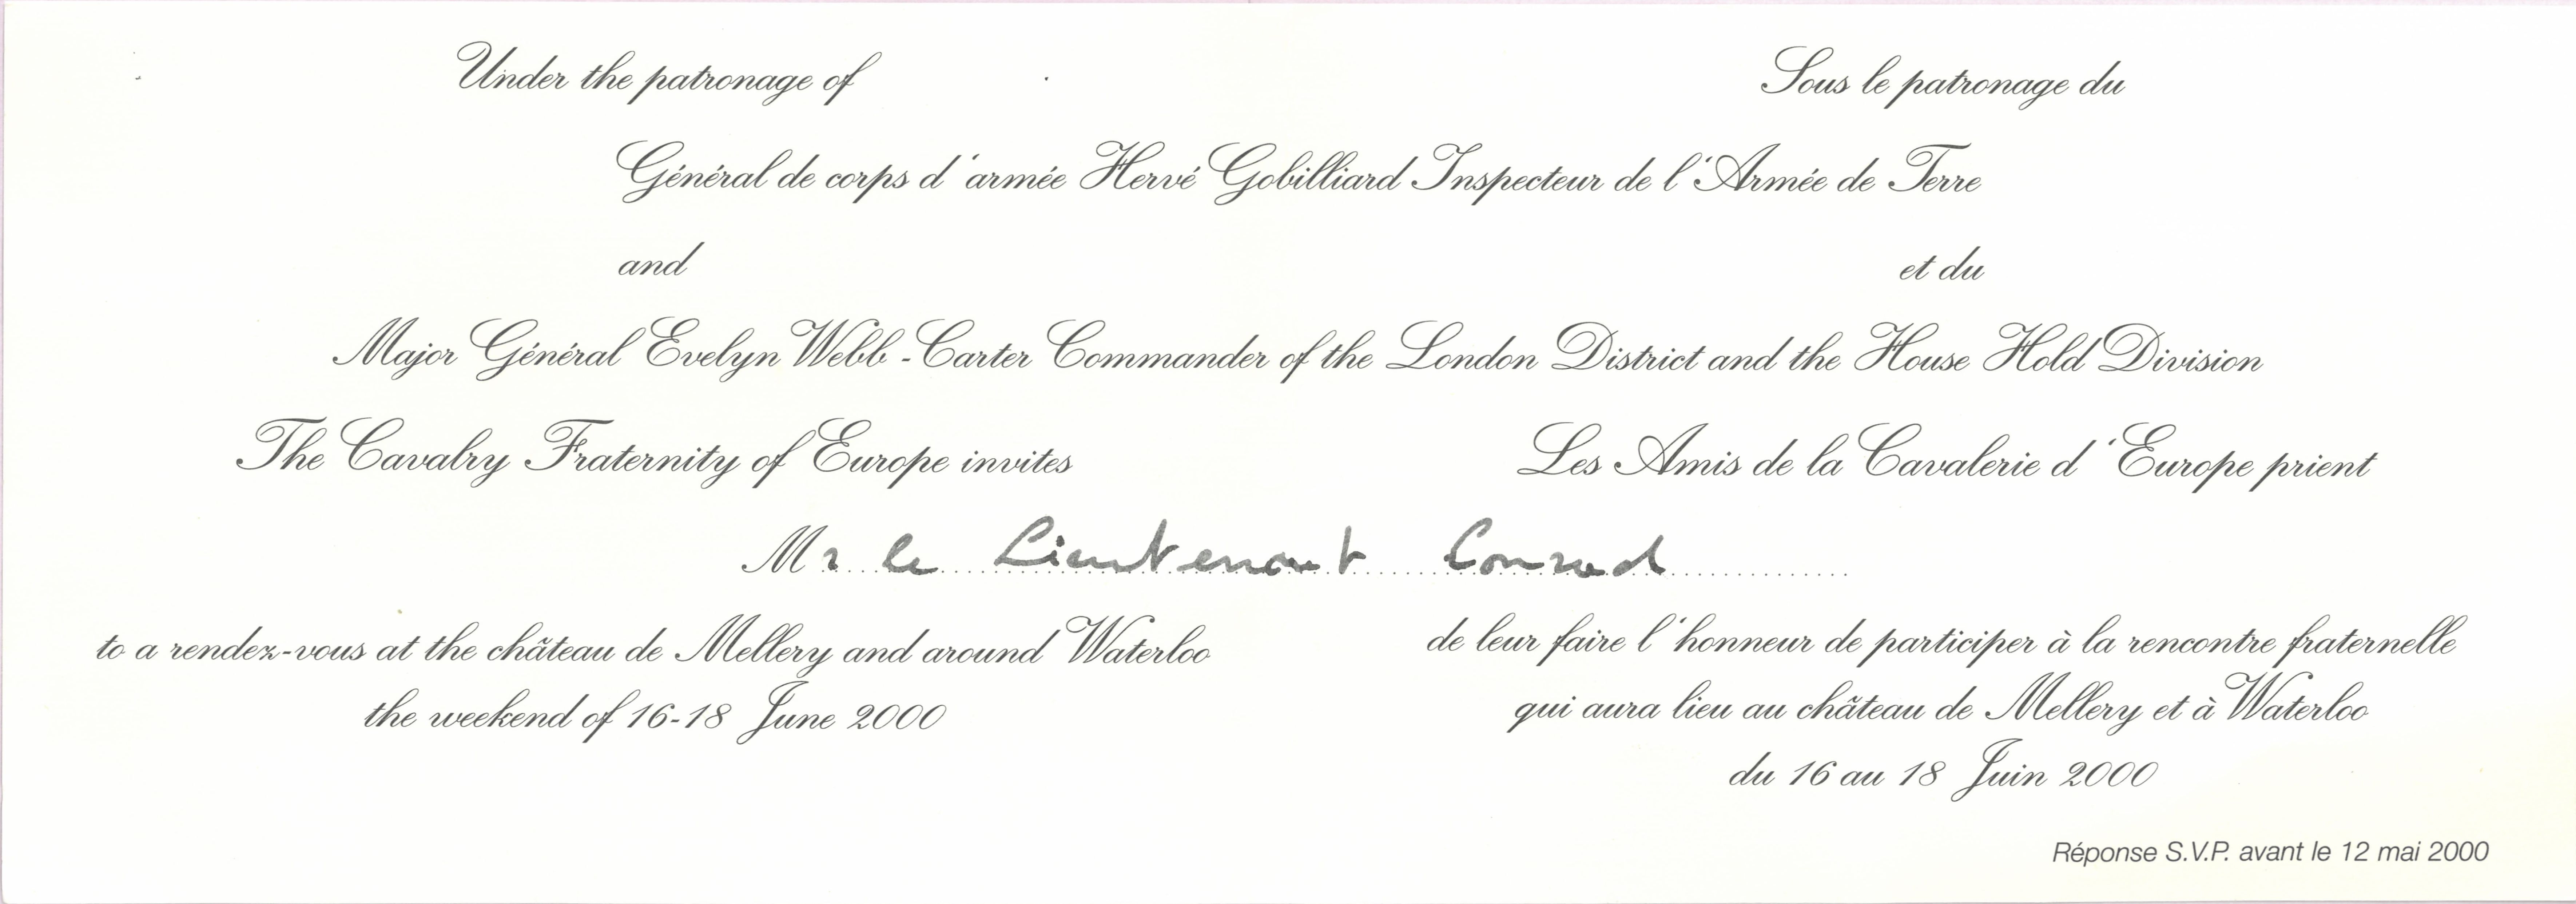 Under the patronage of
Sous le patronage du
Général de corps d'armée Hervé Gobilliard Inspecteur de l'Armée de Terre
and
et du
Major Général Evelyn Webb-Carter Commander of the London District and the House Hold Division
The Cavalry Fraternity of Europe invites
Les Amis de la Cavalerie d'Europe prient
Mr le Lieutenant Conrad
to a rendez-vous at the château de Mellery and around Waterloo
the weekend of 16-18 June 2000
de leur faire l'honneur de participer à la rencontre fraternelle
qui aura lieu au château de Mellery et à Waterloo
du 16 au 18 Juin 2000
Réponse S.V.P. avant le 12 mai 2000